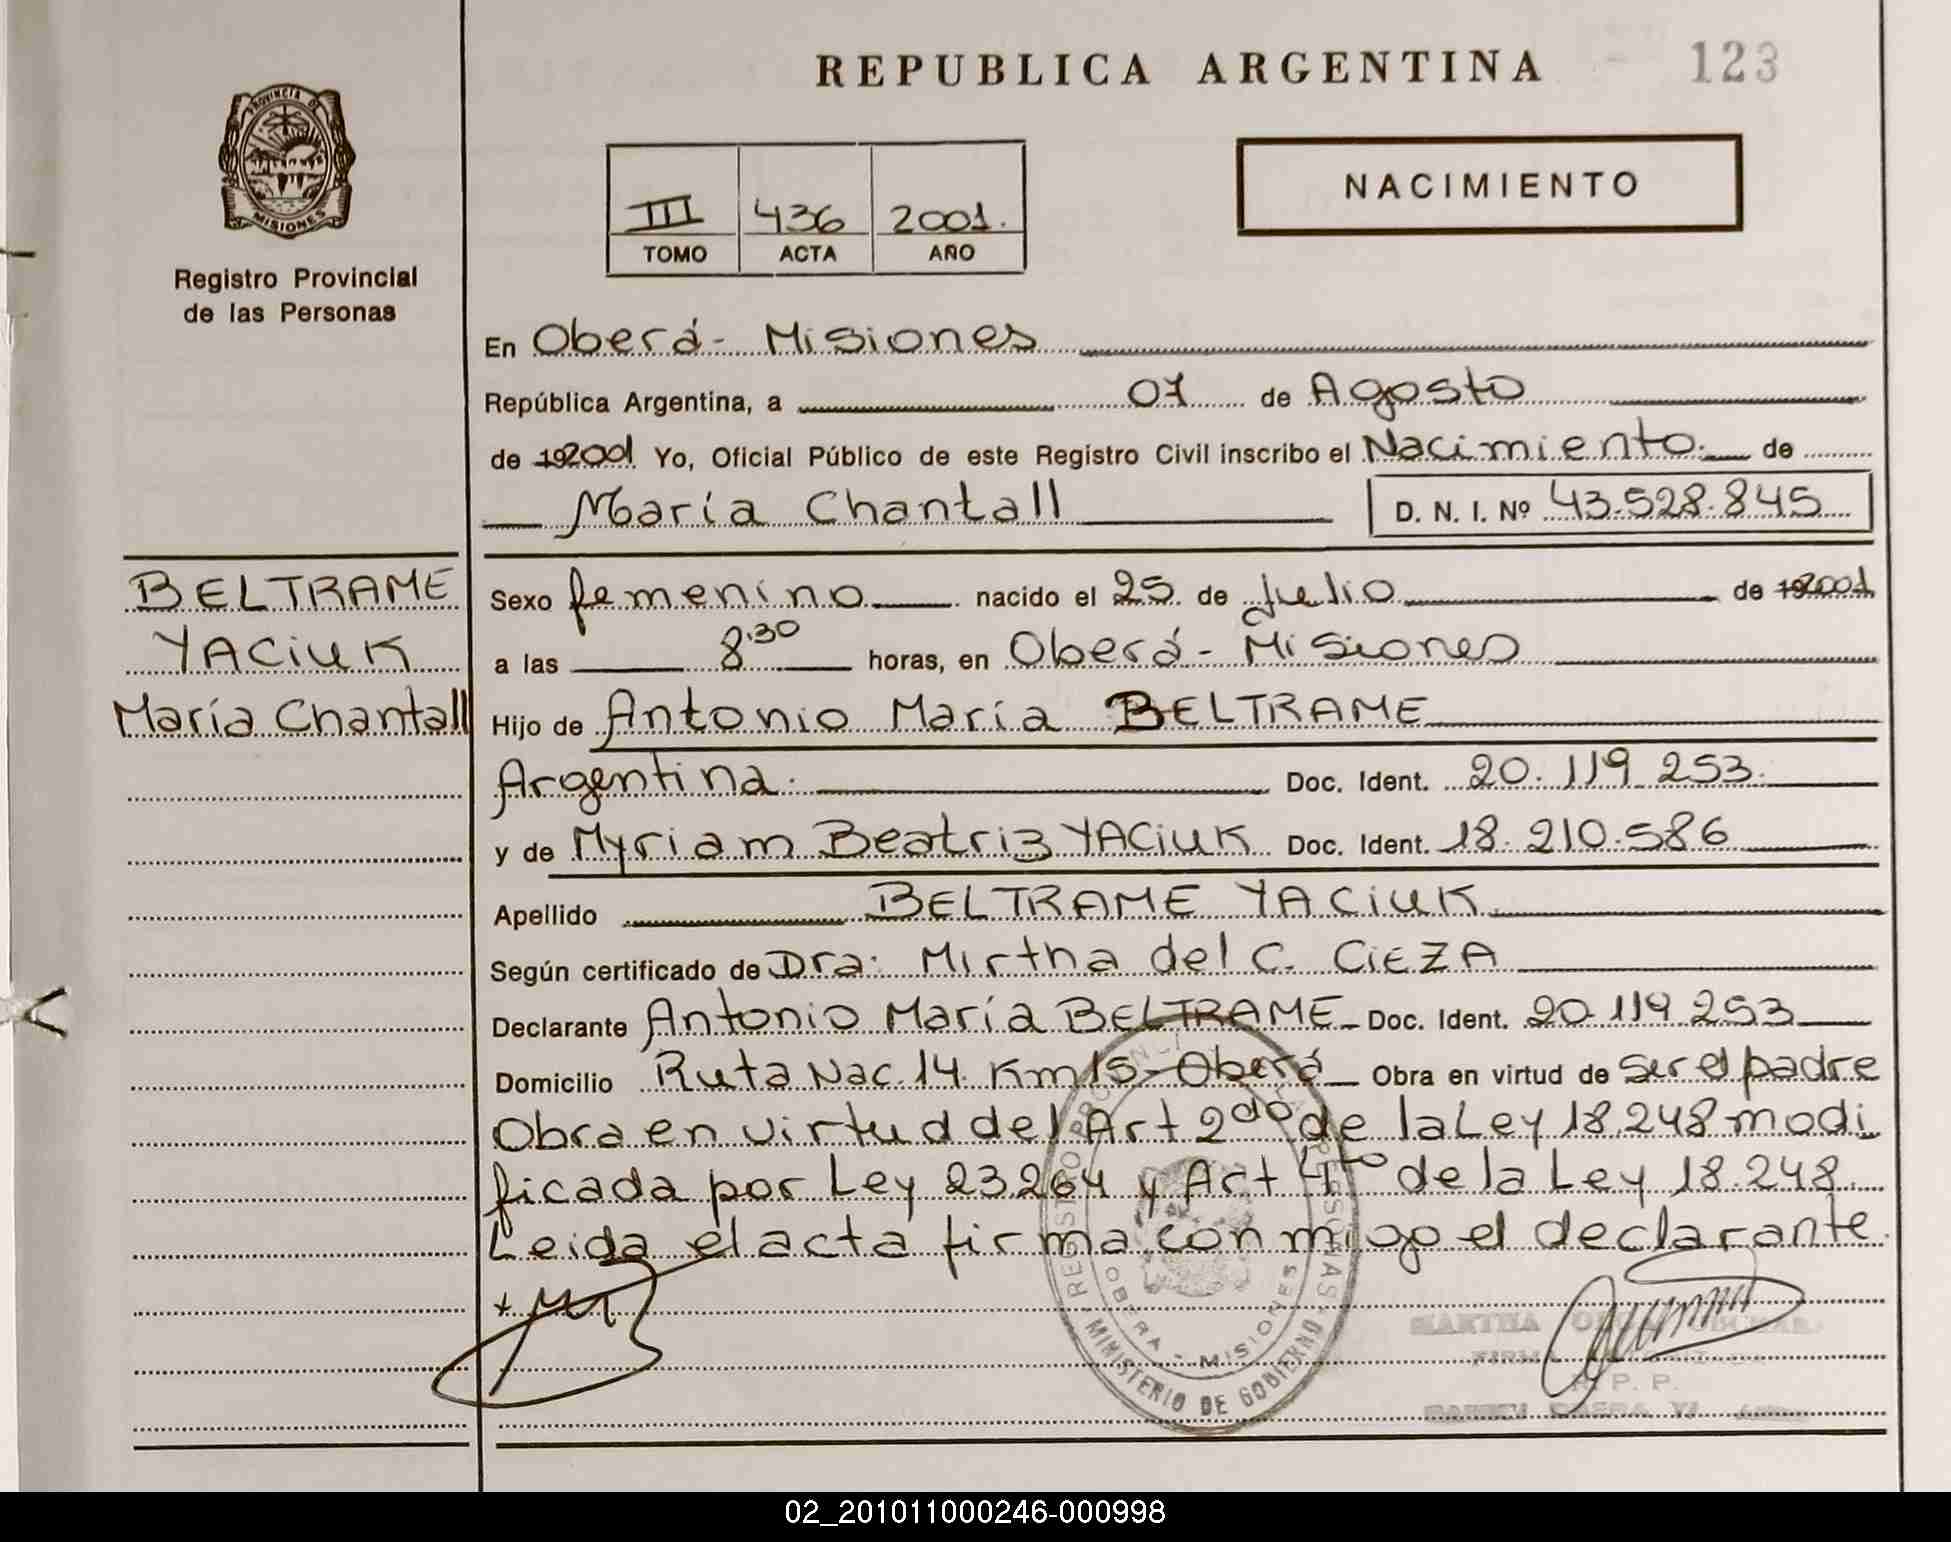 REPUBLICA ARGENTINA
123
PROVINCIA DE
MISIONES
Registro Provincial
de las Personas
III 436 2001.
TOMO ACTA AÑO
NACIMIENTO
En Oberá - Misiones
República Argentina, a 07 de Agosto
de 192001 Yo, Oficial Público de este Registro Civil inscribo el Nacimiento. de
María Chantall D. N. I. Nº 43.528.845
BELTRAME
YACIUK
María Chantall
Sexo femenino nacido el 25 de Julio de 192001
a las 8:30 horas, en Oberá - Misiones
Hijo de Antonio María BELTRAME
Argentina. Doc. Ident. 20.119.253.
y de Myriam Beatriz YACIUK Doc. Ident. 18.210.586
Apellido BELTRAME YACIUK
Según certificado de Dra. Mirtha del C. CIEZA
Declarante Antonio María BELTRAME Doc. Ident. 20.119.253
Domicilio Ruta Nac. 14. Km 15 - Oberá Obra en virtud de Ser el padre
Obra en virtud del Art 2do de la Ley 18.248 modi
ficada por Ley 23264 y Art 4to de la Ley 18.248.
Leida el acta firma conmigo el declarante.
OBERA - MISIONES
MINISTERIO DE GOBIERNO
MARTHA
R. P. P.
02_201011000246-000998